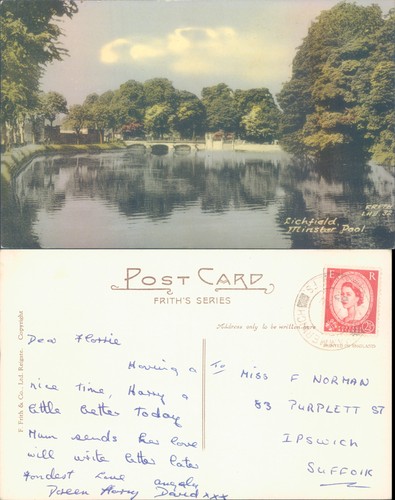 FRITH
LH11.52
Lichfield,
Minster Pool.
POST CARD
FRITH'S SERIES
Address only to be written here
F. Frith & Co., Ltd. Reigate. Copyright
E R
Dear Florrie
Having a
nice time, Harry a
little better today
Mum sends her love
will write letter later
fondest Love
Doreen Harry David xxx
To Miss F NORMAN
83 PURPLETT ST
IPSWICH
SUFFOLK